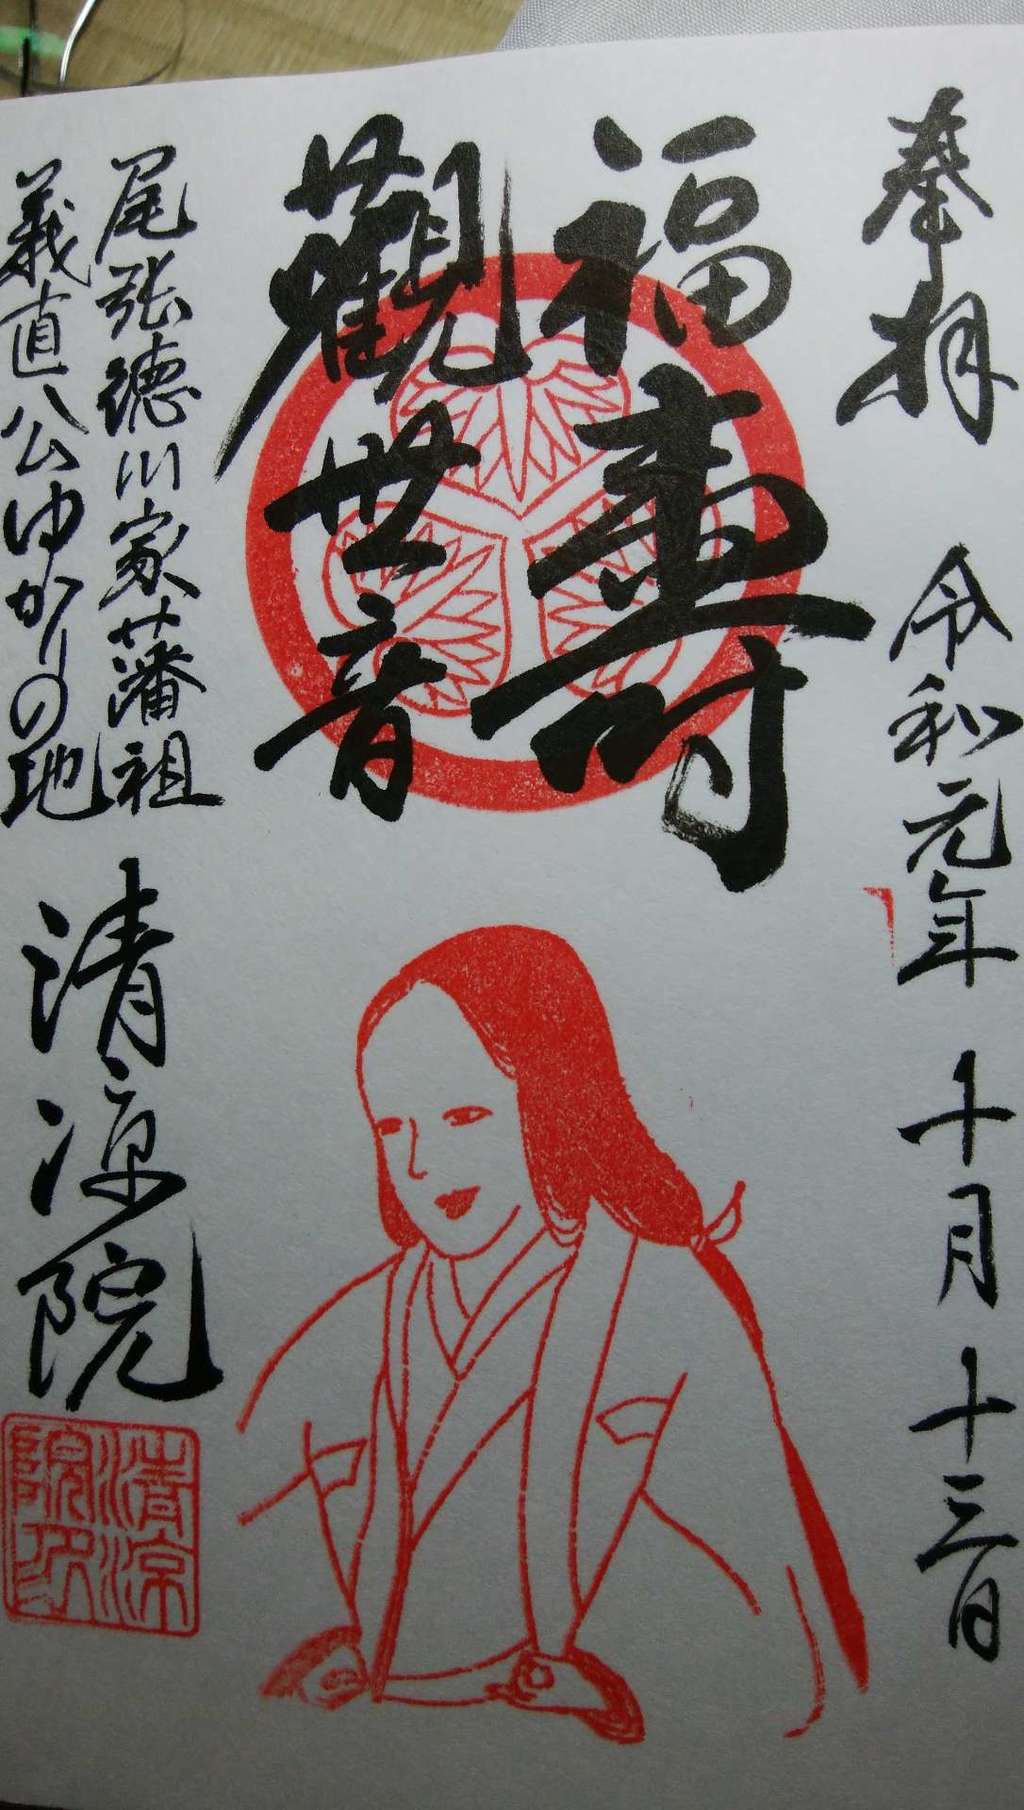 奉拝 令和元年 十月 十三日
福壽
觀世音
尾張徳川家藩祖
義直公ゆかりの地
清涼院
清涼
院印